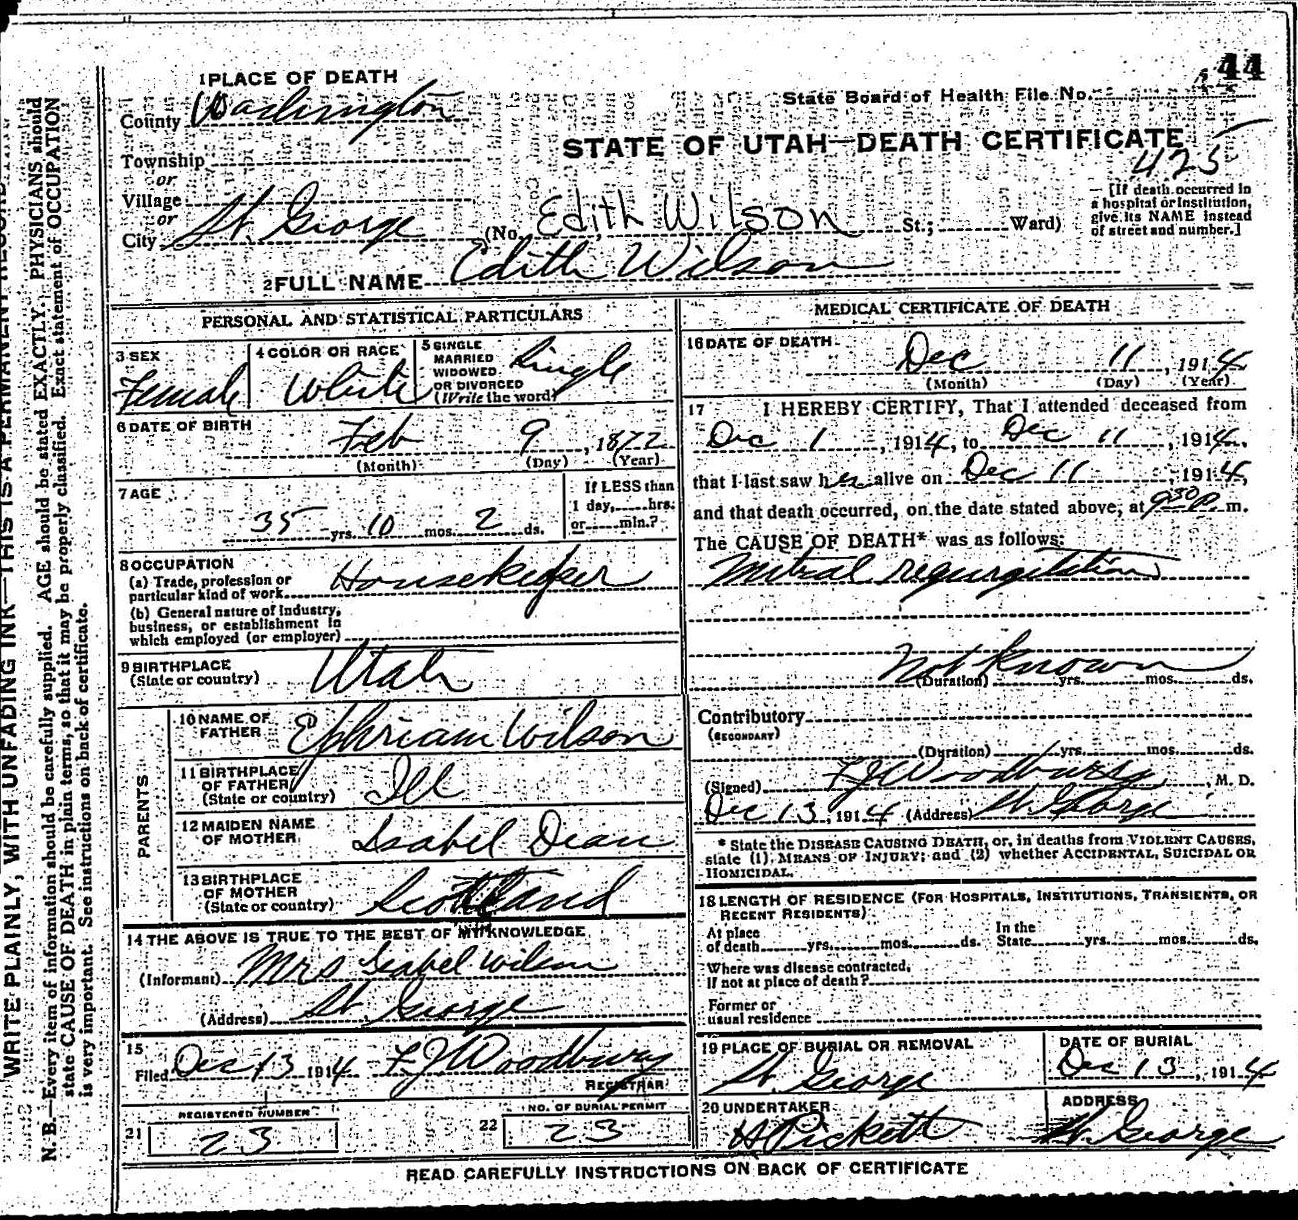 44
1 PLACE OF DEATH
County Washington
State Board of Health File No.
STATE OF UTAH—DEATH CERTIFICATE
425
Township
or
Village
or
City St. George (No. Edith Wilson St.; Ward)
[If death occurred in
a hospital or institution,
give its NAME instead
of street and number.]
2 FULL NAME Edith Wilson
PERSONAL AND STATISTICAL PARTICULARS
3 SEX Female
4 COLOR OR RACE White
5 SINGLE
MARRIED
WIDOWED
OR DIVORCED
(Write the word) Single
6 DATE OF BIRTH
Feb 9, 1872
(Month) (Day) (Year)
7 AGE
35 yrs. 10 mos. 2 ds.
If LESS than
1 day, hrs.
or min.?
8 OCCUPATION
(a) Trade, profession or
particular kind of work Housekeeper
(b) General nature of industry,
business, or establishment in
which employed (or employer)
9 BIRTHPLACE
(State or country) Utah
PARENTS
10 NAME OF
FATHER Ephriam Wilson
11 BIRTHPLACE
OF FATHER
(State or country) Ill
12 MAIDEN NAME
OF MOTHER Isabel Dean
13 BIRTHPLACE
OF MOTHER
(State or country) Scotland
14 THE ABOVE IS TRUE TO THE BEST OF MY KNOWLEDGE
(Informant) Mrs Isabel Wilson
(Address) St. George
15
Filed Dec 13 1914 F J Woodbury
REGISTRAR
REGISTERED NUMBER
21 23
NO. OF BURIAL PERMIT
22 23
MEDICAL CERTIFICATE OF DEATH
16 DATE OF DEATH
Dec 11, 1914
(Month) (Day) (Year)
17 I HEREBY CERTIFY, That I attended deceased from
Dec 1, 1914, to Dec 11, 1914,
that I last saw her alive on Dec 11, 1914,
and that death occurred, on the date stated above, at 9 30 P. m.
The CAUSE OF DEATH* was as follows:
Mitral regurgitation
Not Known
(Duration) yrs. mos. ds.
Contributory
(SECONDARY)
(Duration) yrs. mos. ds.
(Signed) F J Woodbury, M. D.
Dec 13, 1914 (Address) St. George
* State the DISEASE CAUSING DEATH, or, in deaths from VIOLENT CAUSES,
state (1) MEANS OF INJURY; and (2) whether ACCIDENTAL, SUICIDAL OR
HOMICIDAL.
18 LENGTH OF RESIDENCE (FOR HOSPITALS, INSTITUTIONS, TRANSIENTS, OR
RECENT RESIDENTS)
At place
of death yrs. mos. ds. In the
State yrs. mos. ds.
Where was disease contracted,
if not at place of death?
Former or
usual residence
19 PLACE OF BURIAL OR REMOVAL
St. George
DATE OF BURIAL
Dec 13, 1914
20 UNDERTAKER
H Pickett
ADDRESS
St. George
READ CAREFULLY INSTRUCTIONS ON BACK OF CERTIFICATE
WRITE PLAINLY, WITH UNFADING INK—THIS IS A PERMANENT RECORD
N. B.—Every item of information should be carefully supplied. AGE should be stated EXACTLY. PHYSICIANS should
state CAUSE OF DEATH in plain terms, so that it may be properly classified. Exact statement of OCCUPATION
is very important. See instructions on back of certificate.